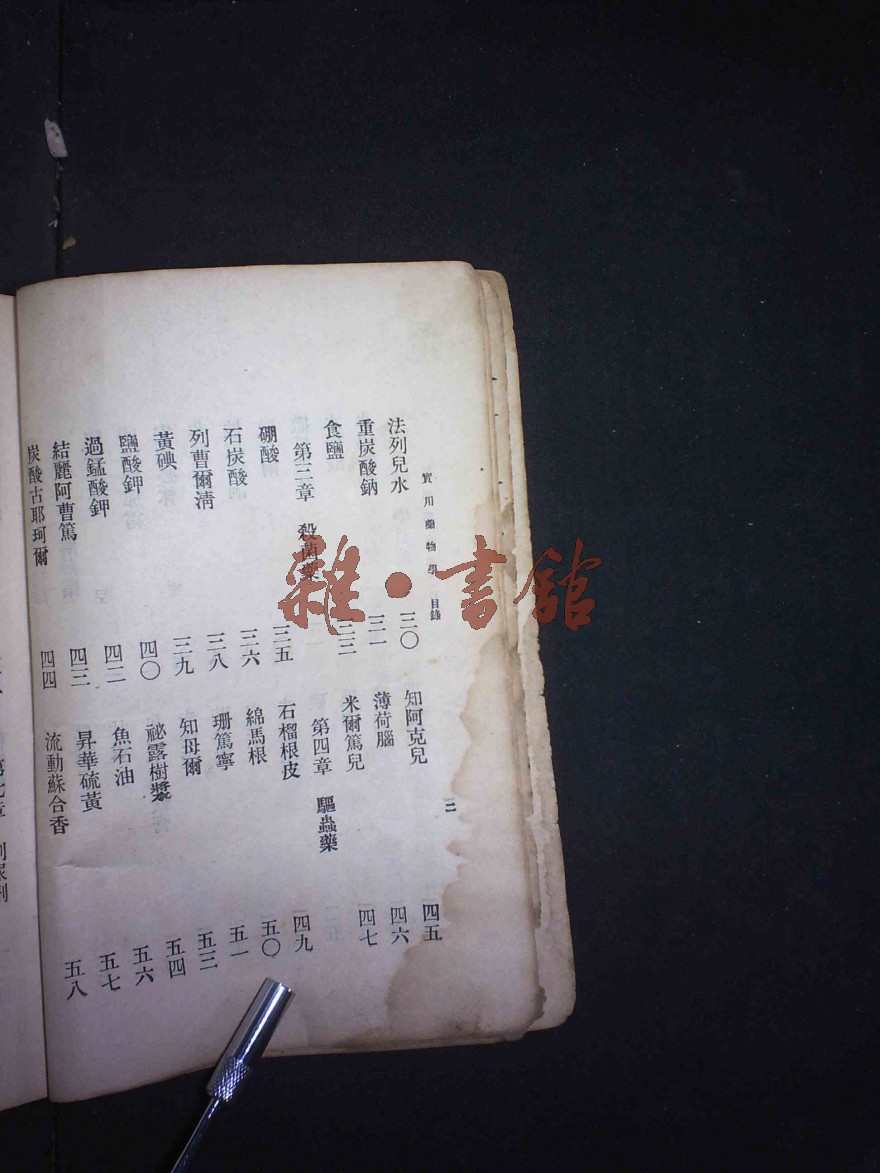 實用藥物學 目錄
二
法列兒水 三〇
重炭酸鈉 三一
食鹽 三三
第三章 殺菌藥
硼酸 三五
石炭酸 三六
列曹爾淸 三八
黃碘 三九
鹽酸鉀 四〇
過錳酸鉀 四二
結麗阿曹篤 四三
炭酸古耶珂爾 四四
知阿克兒 四五
薄荷腦 四六
米爾篤兒 四七
第四章 驅蟲藥
石榴根皮 四九
綿馬根 五〇
珊篤寧 五一
知母爾 五三
祕露樹漿 五四
魚石油 五六
昇華硫黃 五七
流動蘇合香 五八
雜·書館